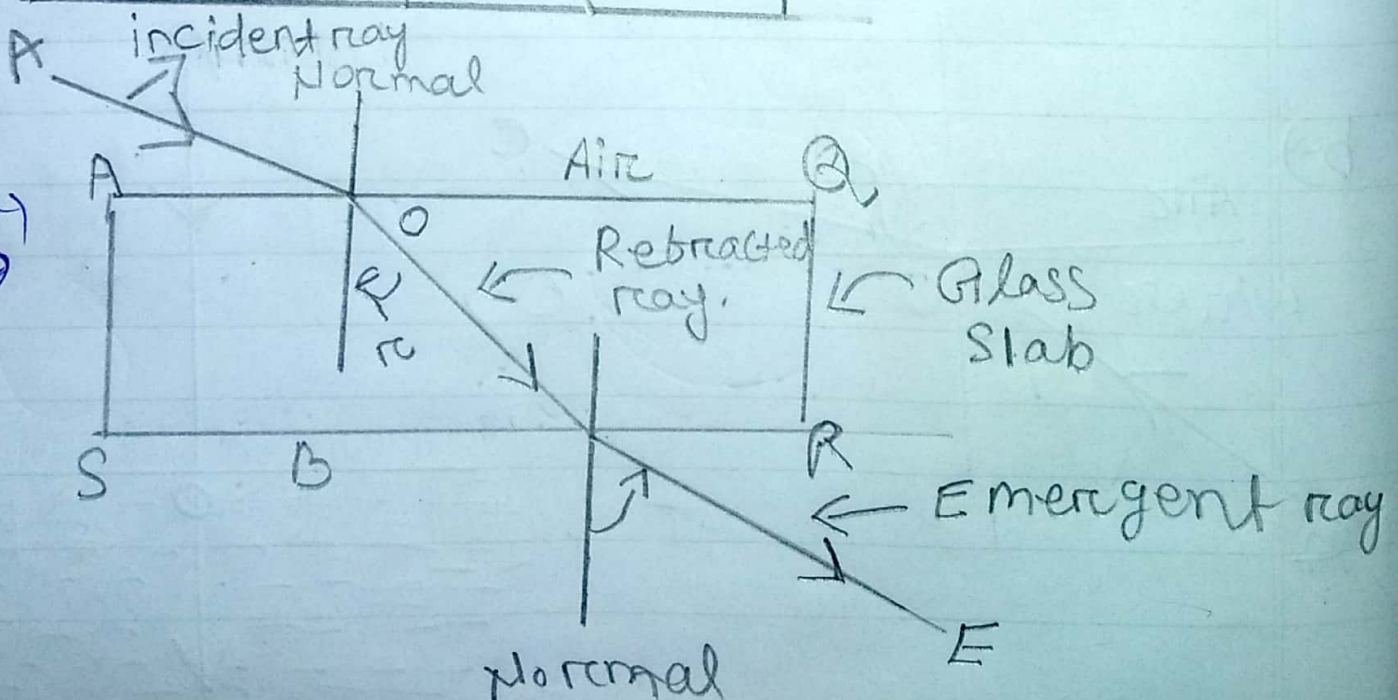 A
incident ray
Normal
A
Air
Q
O
Rebracted
ray.
Glass
Slab
r
S
B
R
Emergent ray
E
Normal